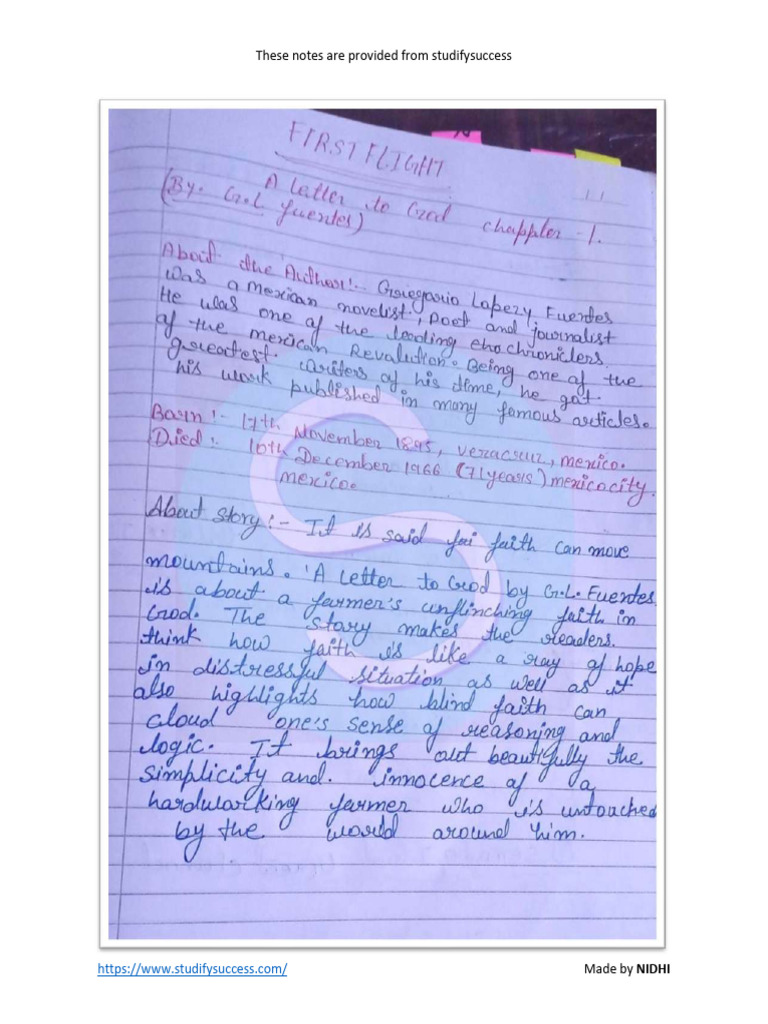 These notes are provided from studifysuccess
FIRST FLIGHT
A Letter to God chappter -1.
(By. G.L Fuentes)
About the Author:- Griegario Lopezy Fuentes
was a Mexican novelist, poet and journalist
He was one of the leading chochroniclers
of the mexican Revalution. Being one of the
greatest. Writers of his time, he gat
his work published in many famous articles.
Barn:- 17th November 1895, veracruz, mexico.
Died:- 10th December 1966 (71years) mexicocity.
mexico.
About story:- It is said fai faith can move
mountains. 'A Letter to God by G.L. Fuentes
is about a farmer's unflinching faith in
God. The story makes the readers.
think how faith is like a ray of hope
in distressful situation as well as it
also highlights how blind faith can
cloud one's sense of reasoning and
logic. It brings out beautifully the
simplicity and. innocence of a
hardwarking farmer who is untouched
by the world around him.
https://www.studifysuccess.com/
Made by NIDHI